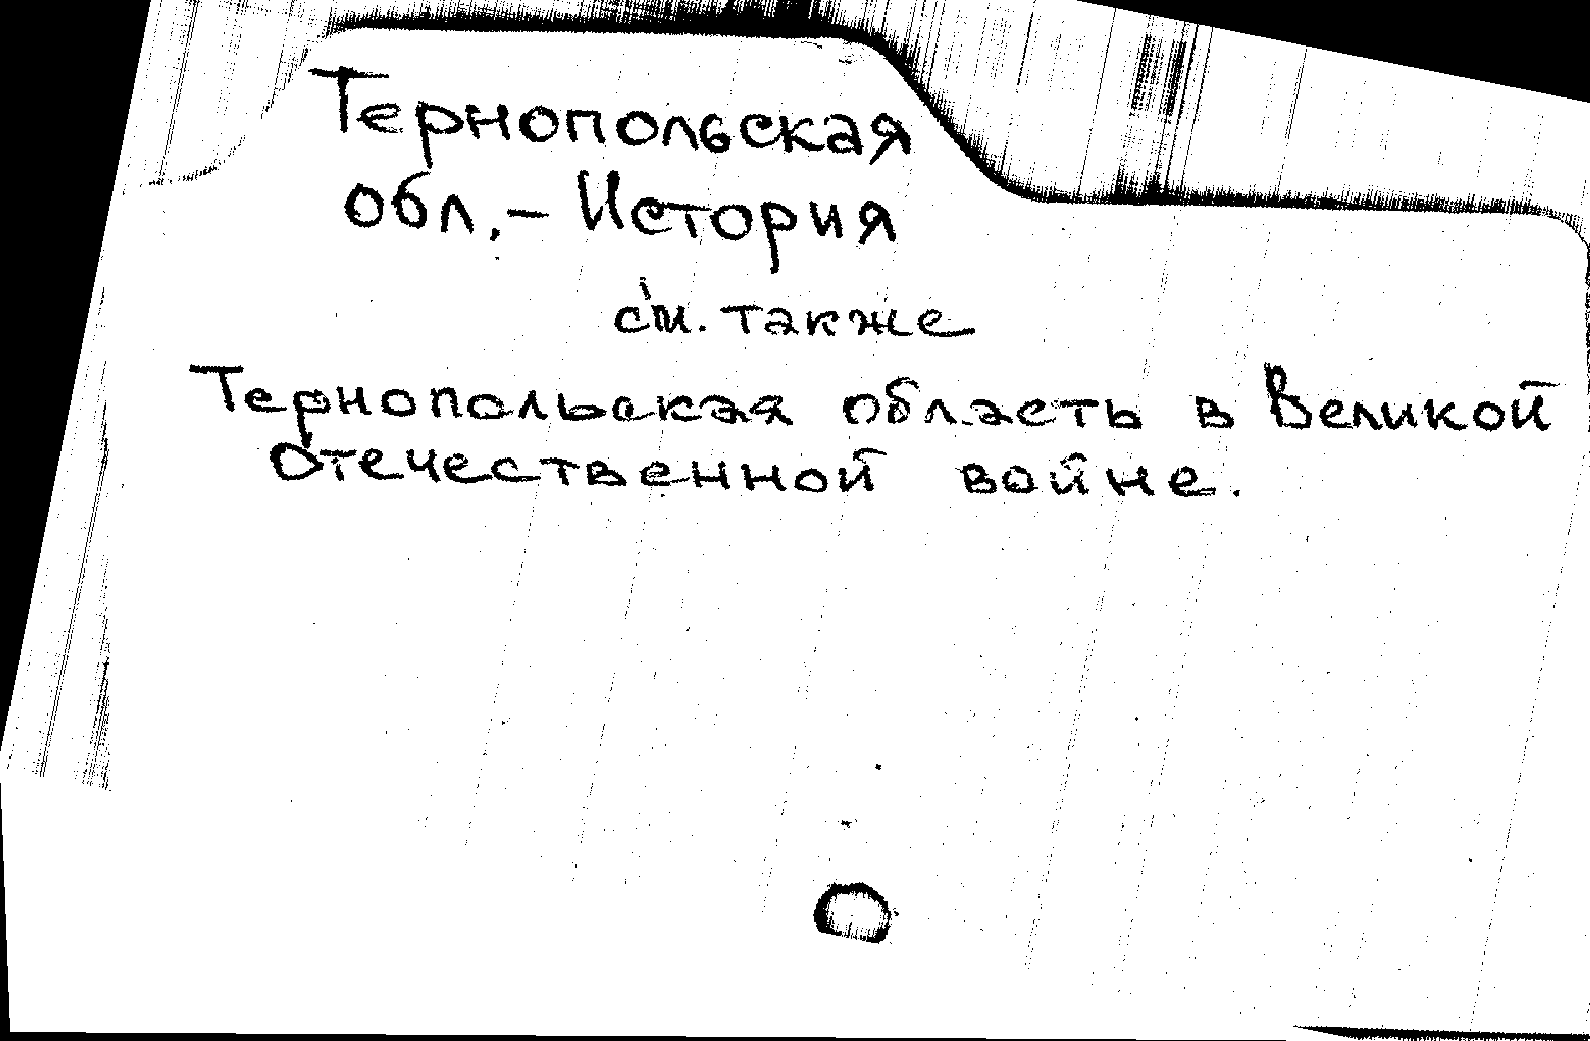 Тернопольская
обл.- История
см. также
Тернопольская область в Великой
Отечественной войне.